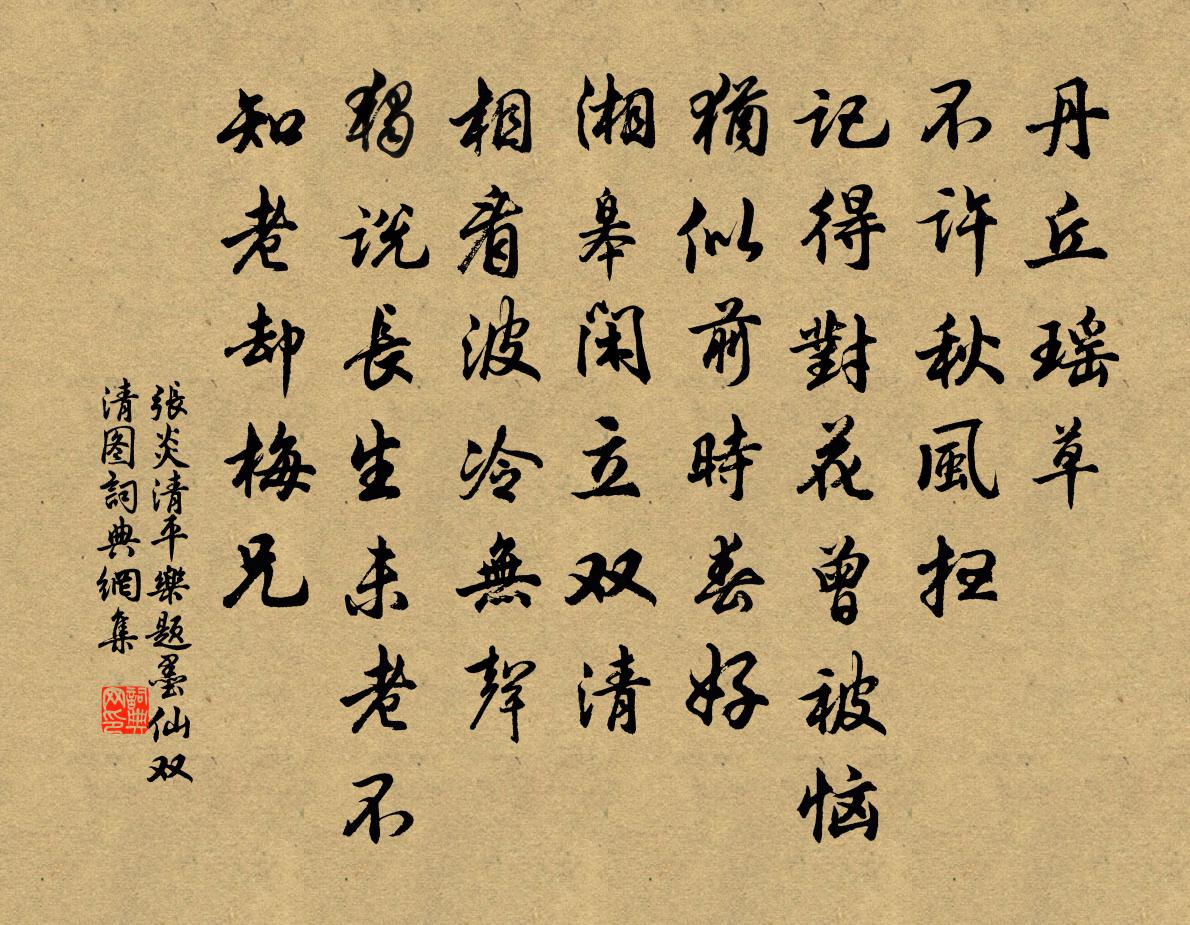 丹丘瑶草
不許秋風扫
記得對花曾被恼
猶似前時春好
湘皋闲立双清
相看波冷無聲
独説長生未老不
知老却梅兄
張炎清平樂题墨仙双
清图詞典網集
詞典网印